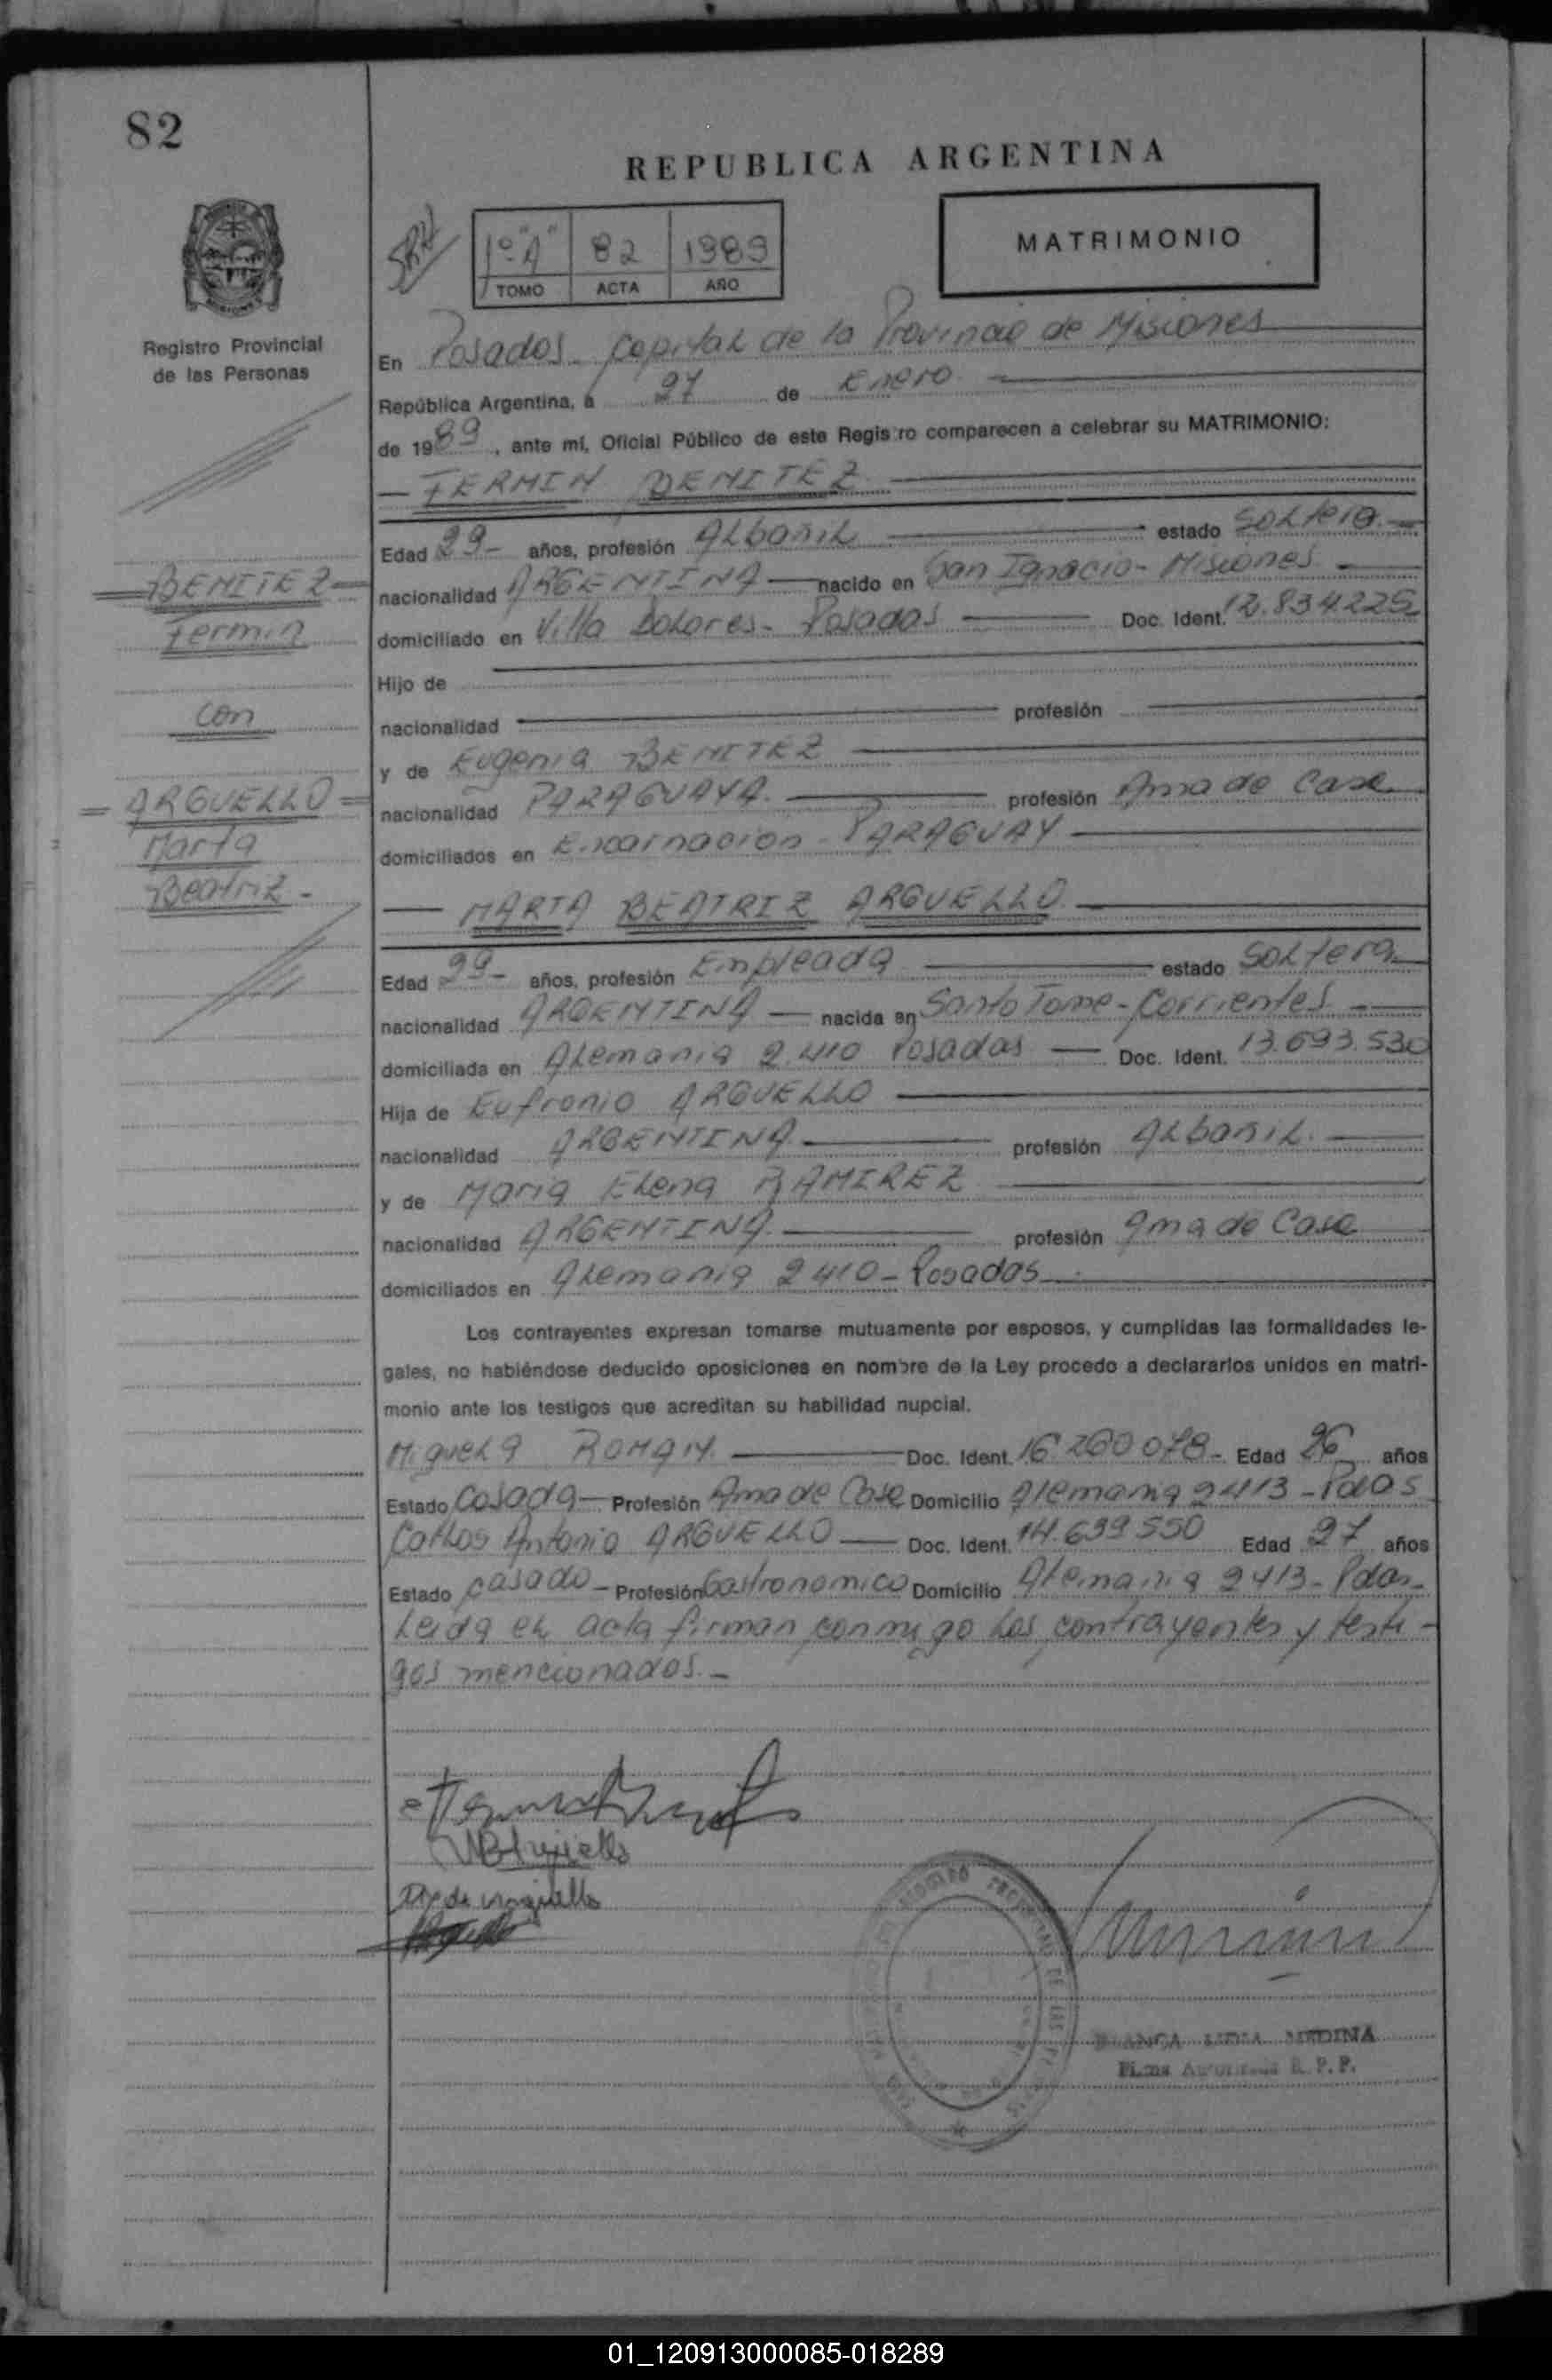 82
REPUBLICA ARGENTINA
1º "A" 82 1989
TOMO ACTA AÑO
MATRIMONIO
Registro Provincial
de las Personas
En Posadas - Capital de la Provincia de Misiones
República Argentina, a 27 de Enero
de 1989, ante mí, Oficial Público de este Registro comparecen a celebrar su MATRIMONIO:
FERMIN BENITEZ
Edad 29 - años, profesión Albañil estado Soltero
BENITEZ
nacionalidad ARGENTINA nacido en San Ignacio - Misiones
Fermin
domiciliado en Villa Dolores - Posadas Doc. Ident. 12.834.225
Hijo de
con
nacionalidad profesión
y de Eugenia BENITEZ
ARGUELLO
nacionalidad PARAGUAYA. profesión Ama de Casa
Marta
domiciliados en Encarnacion - PARAGUAY
Beatriz -
MARTA BEATRIZ ARGUELLO.
Edad 29 - años, profesión Empleada estado Soltera
nacionalidad ARGENTINA nacida en Santo Tome - Corrientes
domiciliada en Alemania 2.410 Posadas Doc. Ident. 13.693.530
Hija de Eufronio ARGUELLO
nacionalidad ARGENTINA profesión Albañil.
y de Maria Elena RAMIREZ
nacionalidad ARGENTINA. profesión Ama de Casa
domiciliados en Alemania 2410 - Posadas
Los contrayentes expresan tomarse mutuamente por esposos, y cumplidas las formalidades le-
gales, no habiéndose deducido oposiciones en nombre de la Ley procedo a declararlos unidos en matri-
monio ante los testigos que acreditan su habilidad nupcial.
Miguela ROMAN. Doc. Ident. 16.260.078 - Edad 26 años
Estado Casada Profesión Ama de Casa Domicilio Alemania 2413 - Pdas
Carlos Antonio ARGUELLO Doc. Ident. 14.639.550 Edad 27 años
Estado Casado - Profesión Gastronomico Domicilio Alemania 2413 - Pdas -
Leida el acta firman conmigo los contrayentes y testi-
gos mencionados. -
BLANCA LIDIA MEDINA
R. P. P.
01_120913000085-018289